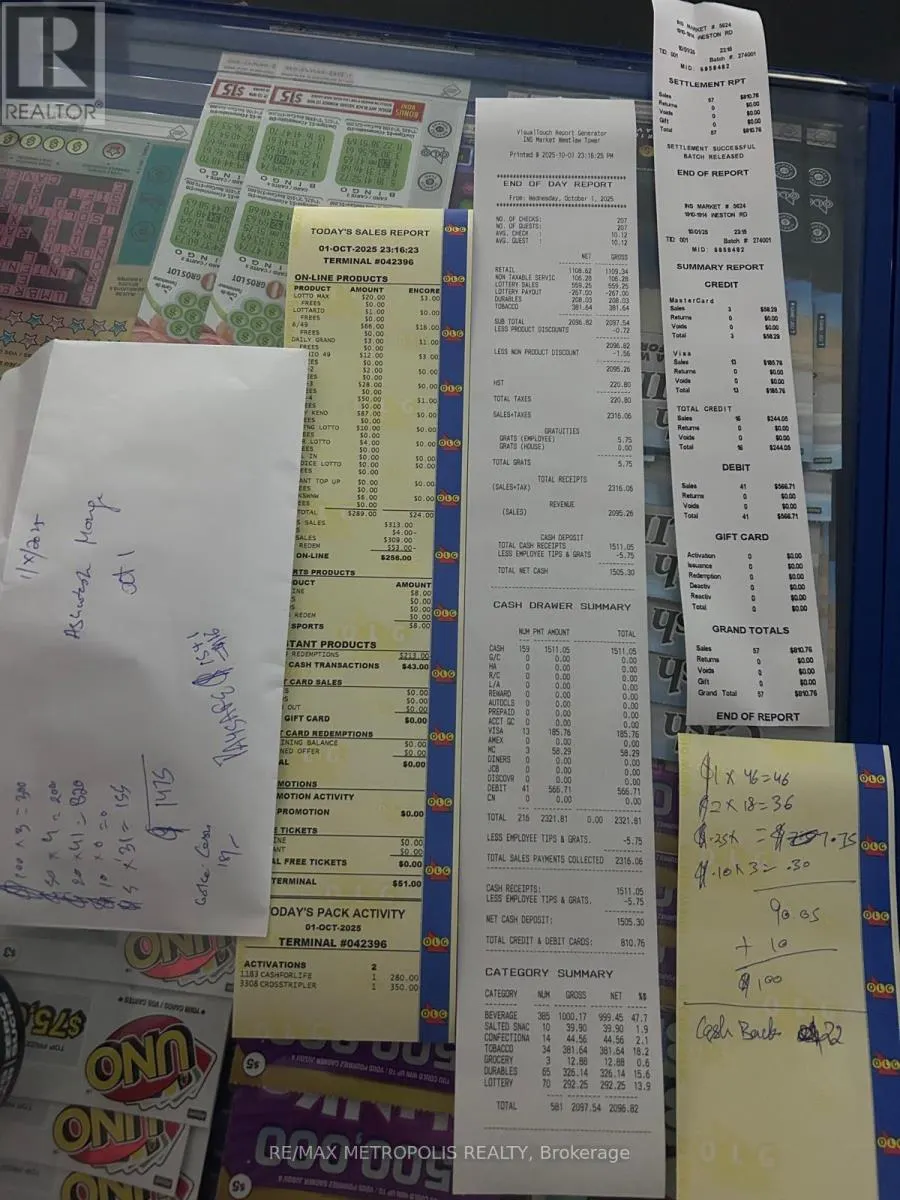 REALTOR®
TODAY'S SALES REPORT
01-OCT-2025 23:16:23
TERMINAL #042396
ON-LINE PRODUCTS
PRODUCT AMOUNT ENCORE
LOTTO MAX $20.00 $3.00
FREES $0.00
LOTTARIO $1.00 $0.00
FREES $0.00
6/49 $66.00 $16.00
FREES $0.00
DAILY GRAND $3.00 $1.00
FREES $0.00
IO 49 $12.00 $3.00
$0.00
-2 $2.00 $0.00
$0.00
-3 $28.00 $0.00
$0.00
-4 $50.00 $1.00
$0.00
Y KENO $87.00 $0.00
EES $0.00
NG LOTTO $10.00 $0.00
EES $0.00
R LOTTO $4.00 $0.00
EES $0.00
L IN $0.00 $0.00
OICE LOTTO $0.00 $0.00
EES $0.00
ANT TOP UP $0.00 $0.00
EES $0.00
$6.00 $0.00
EES $0.00
TOTAL $289.00 $24.00
S SALES $313.00
$4.00-
SALES $309.00
REDEM $53.00-
ON-LINE $256.00
RTS PRODUCTS
DUCT AMOUNT
INE $8.00
S $0.00
S $0.00
REDEM $0.00
SPORTS $8.00
TANT PRODUCTS
REDEMPTIONS $213.00
CASH TRANSACTIONS $43.00
CARD SALES
S $0.00
S $0.00
OUT $0.00
GIFT CARD $0.00
CARD REDEMPTIONS
INING BALANCE $0.00
NED OFFER $0.00
AL $0.00
MOTIONS
MOTION ACTIVITY
PROMOTION $0.00
E TICKETS
INE $0.00
ANT $0.00
AL FREE TICKETS $0.00
TERMINAL $51.00
TODAY'S PACK ACTIVITY
01-OCT-2025
TERMINAL #042396
ACTIVATIONS 2
1183 CASHFORLIFE 1 280.00
3308 CROSSTRIPLER 1 350.00
VisualTouch Report Generator
INS Market Westlow Tower
Printed @ 2025-10-01 23:16:25 PM
END OF DAY REPORT
From: Wednesday, October 1, 2025
NO. OF CHECKS: 207
NO. OF GUESTS: 207
AVG. CHECK : 10.12
AVG. GUEST : 10.12
NET GROSS
RETAIL 1108.62 1109.34
NON TAXABLE SERVIC 106.28 106.28
LOTTERY SALES 559.25 559.25
LOTTERY PAYOUT -267.00 -267.00
DURABLES 208.03 208.03
TOBACCO 381.64 381.64
SUB TOTAL 2096.82 2097.54
LESS PRODUCT DISCOUNTS -0.72
2096.82
LESS NON PRODUCT DISCOUNT -1.56
2095.26
HST 220.80
TOTAL TAXES 220.80
SALES+TAXES 2316.06
GRATUITIES
GRATS (EMPLOYEE) 5.75
GRATS (HOUSE) 0.00
TOTAL GRATS 5.75
TOTAL RECEIPTS
(SALES+TAX) 2316.06
REVENUE
(SALES) 2095.26
CASH DEPOSIT
TOTAL CASH RECEIPTS 1511.05
LESS EMPLOYEE TIPS & GRATS -5.75
TOTAL NET CASH 1505.30
CASH DRAWER SUMMARY
NUM PMT AMOUNT TOTAL
CASH 159 1511.05 1511.05
G/C 0 0.00 0.00
HA 0 0.00 0.00
R/C 0 0.00 0.00
L/A 0 0.00 0.00
REWARD 0 0.00 0.00
AUTOCLS 0 0.00 0.00
PREPAID 0 0.00 0.00
ACCT GC 0 0.00 0.00
VISA 13 185.76 185.76
AMEX 0 0.00 0.00
MC 3 58.29 58.29
DINERS 0 0.00 0.00
JCB 0 0.00 0.00
DISCOVR 0 0.00 0.00
DEBIT 41 566.71 566.71
CN 0 0.00 0.00
TOTAL 216 2321.81 0.00 2321.81
LESS EMPLOYEE TIPS & GRATS. -5.75
TOTAL SALES PAYMENTS COLLECTED 2316.06
CASH RECEIPTS: 1511.05
LESS EMPLOYEE TIPS & GRATS. -5.75
NET CASH DEPOSIT: 1505.30
TOTAL CREDIT & DEBIT CARDS: 810.76
CATEGORY SUMMARY
CATEGORY NUM GROSS NET %$
BEVERAGE 385 1000.17 999.45 47.7
SALTED SNAC 10 39.90 39.90 1.9
CONFECTIONA 14 44.56 44.56 2.1
TOBACCO 34 381.64 381.64 18.2
GROCERY 3 12.88 12.88 0.6
DURABLES 65 326.14 326.14 15.6
LOTTERY 70 292.25 292.25 13.9
TOTAL 581 2097.54 2096.82
INS MARKET # 5624
1910-1914 WESTON RD
10/01/25 23:18
TID: 001 Batch #: 274001
MID: 6858482
SETTLEMENT RPT
Sales 57 $810.76
Returns 0 $0.00
Voids 0 $0.00
Gift 0 $0.00
Total 57 $810.76
SETTLEMENT SUCCESSFUL
BATCH RELEASED
END OF REPORT
INS MARKET # 5624
1910-1914 WESTON RD
10/01/25 23:18
TID: 001 Batch #: 274001
MID: 6858482
SUMMARY REPORT
CREDIT
MasterCard
Sales 3 $58.29
Returns 0 $0.00
Voids 0 $0.00
Total 3 $58.29
Visa
Sales 13 $185.76
Returns 0 $0.00
Voids 0 $0.00
Total 13 $185.76
TOTAL CREDIT
Sales 16 $244.05
Returns 0 $0.00
Voids 0 $0.00
Total 16 $244.05
DEBIT
Sales 41 $566.71
Returns 0 $0.00
Voids 0 $0.00
Total 41 $566.71
GIFT CARD
Activation 0 $0.00
Issuance 0 $0.00
Redemption 0 $0.00
Deactiv 0 $0.00
Reactiv 0 $0.00
Total 0 $0.00
GRAND TOTALS
Sales 57 $810.76
Returns 0 $0.00
Voids 0 $0.00
Gift 0 $0.00
Grand Total 57 $810.76
END OF REPORT
$1 x 46 = 46
$2 x 18 = 36
$.25x = 7.75
$.10 x 3 = .30
90.05
+ 10
$100
Cash Back 22
1/X/2025
oct 1
$100 x 3 = 300
$50 x 4 = 200
$20 x 41 = 820
$10 x 0 = 0
$5 x 31 = 155
$1475
$15
BONUS
BINGO
GROS LOT
UNO
$75,0
500,000
$5
OLG
RE/MAX METROPOLIS REALTY, Brokerage